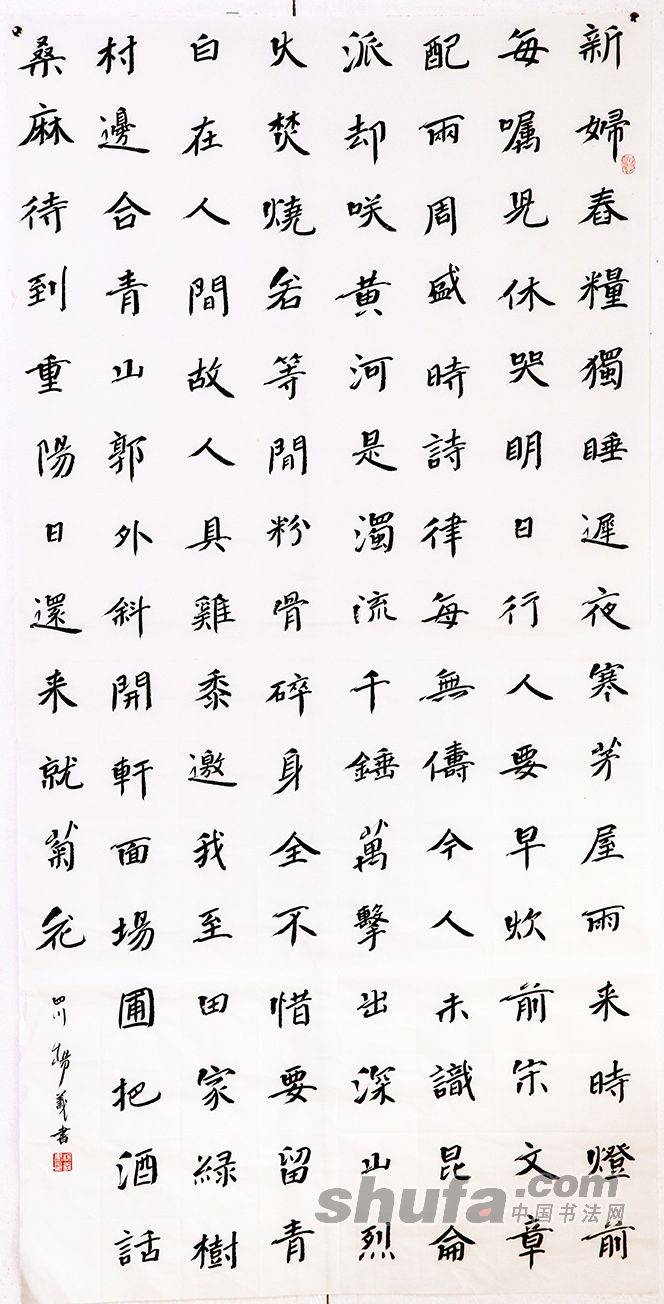 新婦舂糧獨睡遲夜寒茅屋雨来時燈前
每囑児休哭明日行人要早炊前宋文章
配兩周盛時詩律每無儔今人未識昆侖
派却咲黄河是濁流千錘萬擊出深山烈
火焚燒若等閒粉骨碎身全不惜要留青
白在人間故人具雞黍邀我至田家緑樹
村邊合青山郭外斜開軒面場圃把酒話
桑麻待到重陽日還来就菊花
四川楊義書
shufa.com
中国书法网